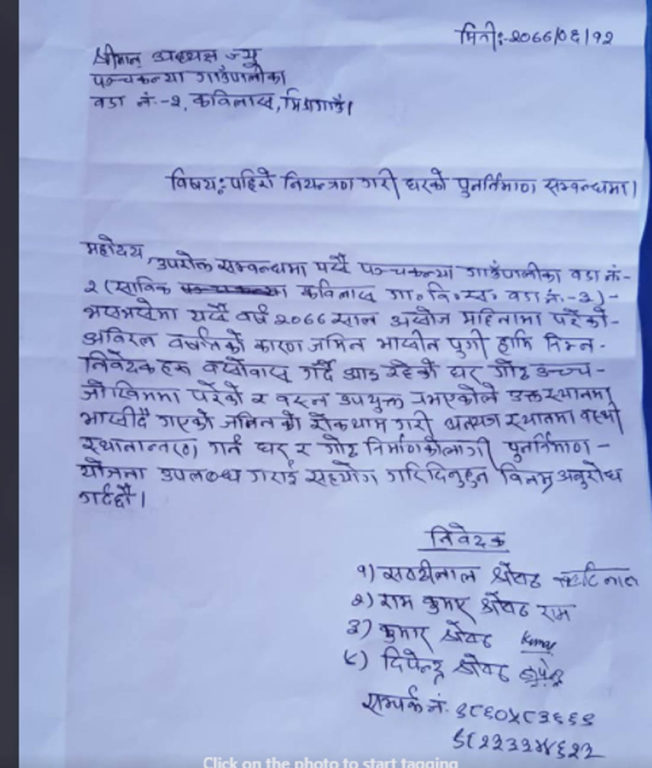 मिती:-२०७७/०६/१२
श्रीमान अध्यक्ष ज्यू
पञ्चकन्या गाउँपालीका
वडा नं.-२, कविलास,
विषय: पहिरो नियन्त्रण गरी घरको पुनर्निमाण सम्वन्धमा।
महोदय, उपरोक्त सम्वन्धमा यसै पञ्चकन्या गाउँपालीका वडा नं-
२ (साविक कविलास गा० वि० स० वडा नं.-३)-
यसै वर्ष साल असोज महिनामा परेको-
अविरल वर्षातको कारण जमिन भासीन पुगी हामि निम्न-
निवेदक हरु वसोवास गर्दै आइ रहेको घर गोठ उच्च-
जोखिममा परेको र वस्न उपयुक्त नभएकोले उक्त स्थानमा
भासीदै गएको जमिन को रोकथाम गरी अन्यत्र स्थानमा वस्ती
गर्न घर र गोठ निर्माणकोलागी पुनर्निमाण-
योजना उपलब्ध गराई सहयोग गरिदिनुहुन विनम्र अनुरोध
गर्दछौं।
निवेदक
१) श्रेष्ठ
२) राम कुमार श्रेष्ठ राम
३) कुमार श्रेष्ठ Kumar
४) दिपेन्द्र श्रेष्ठ
सम्पर्क नं.
Click on the photo to start tagging